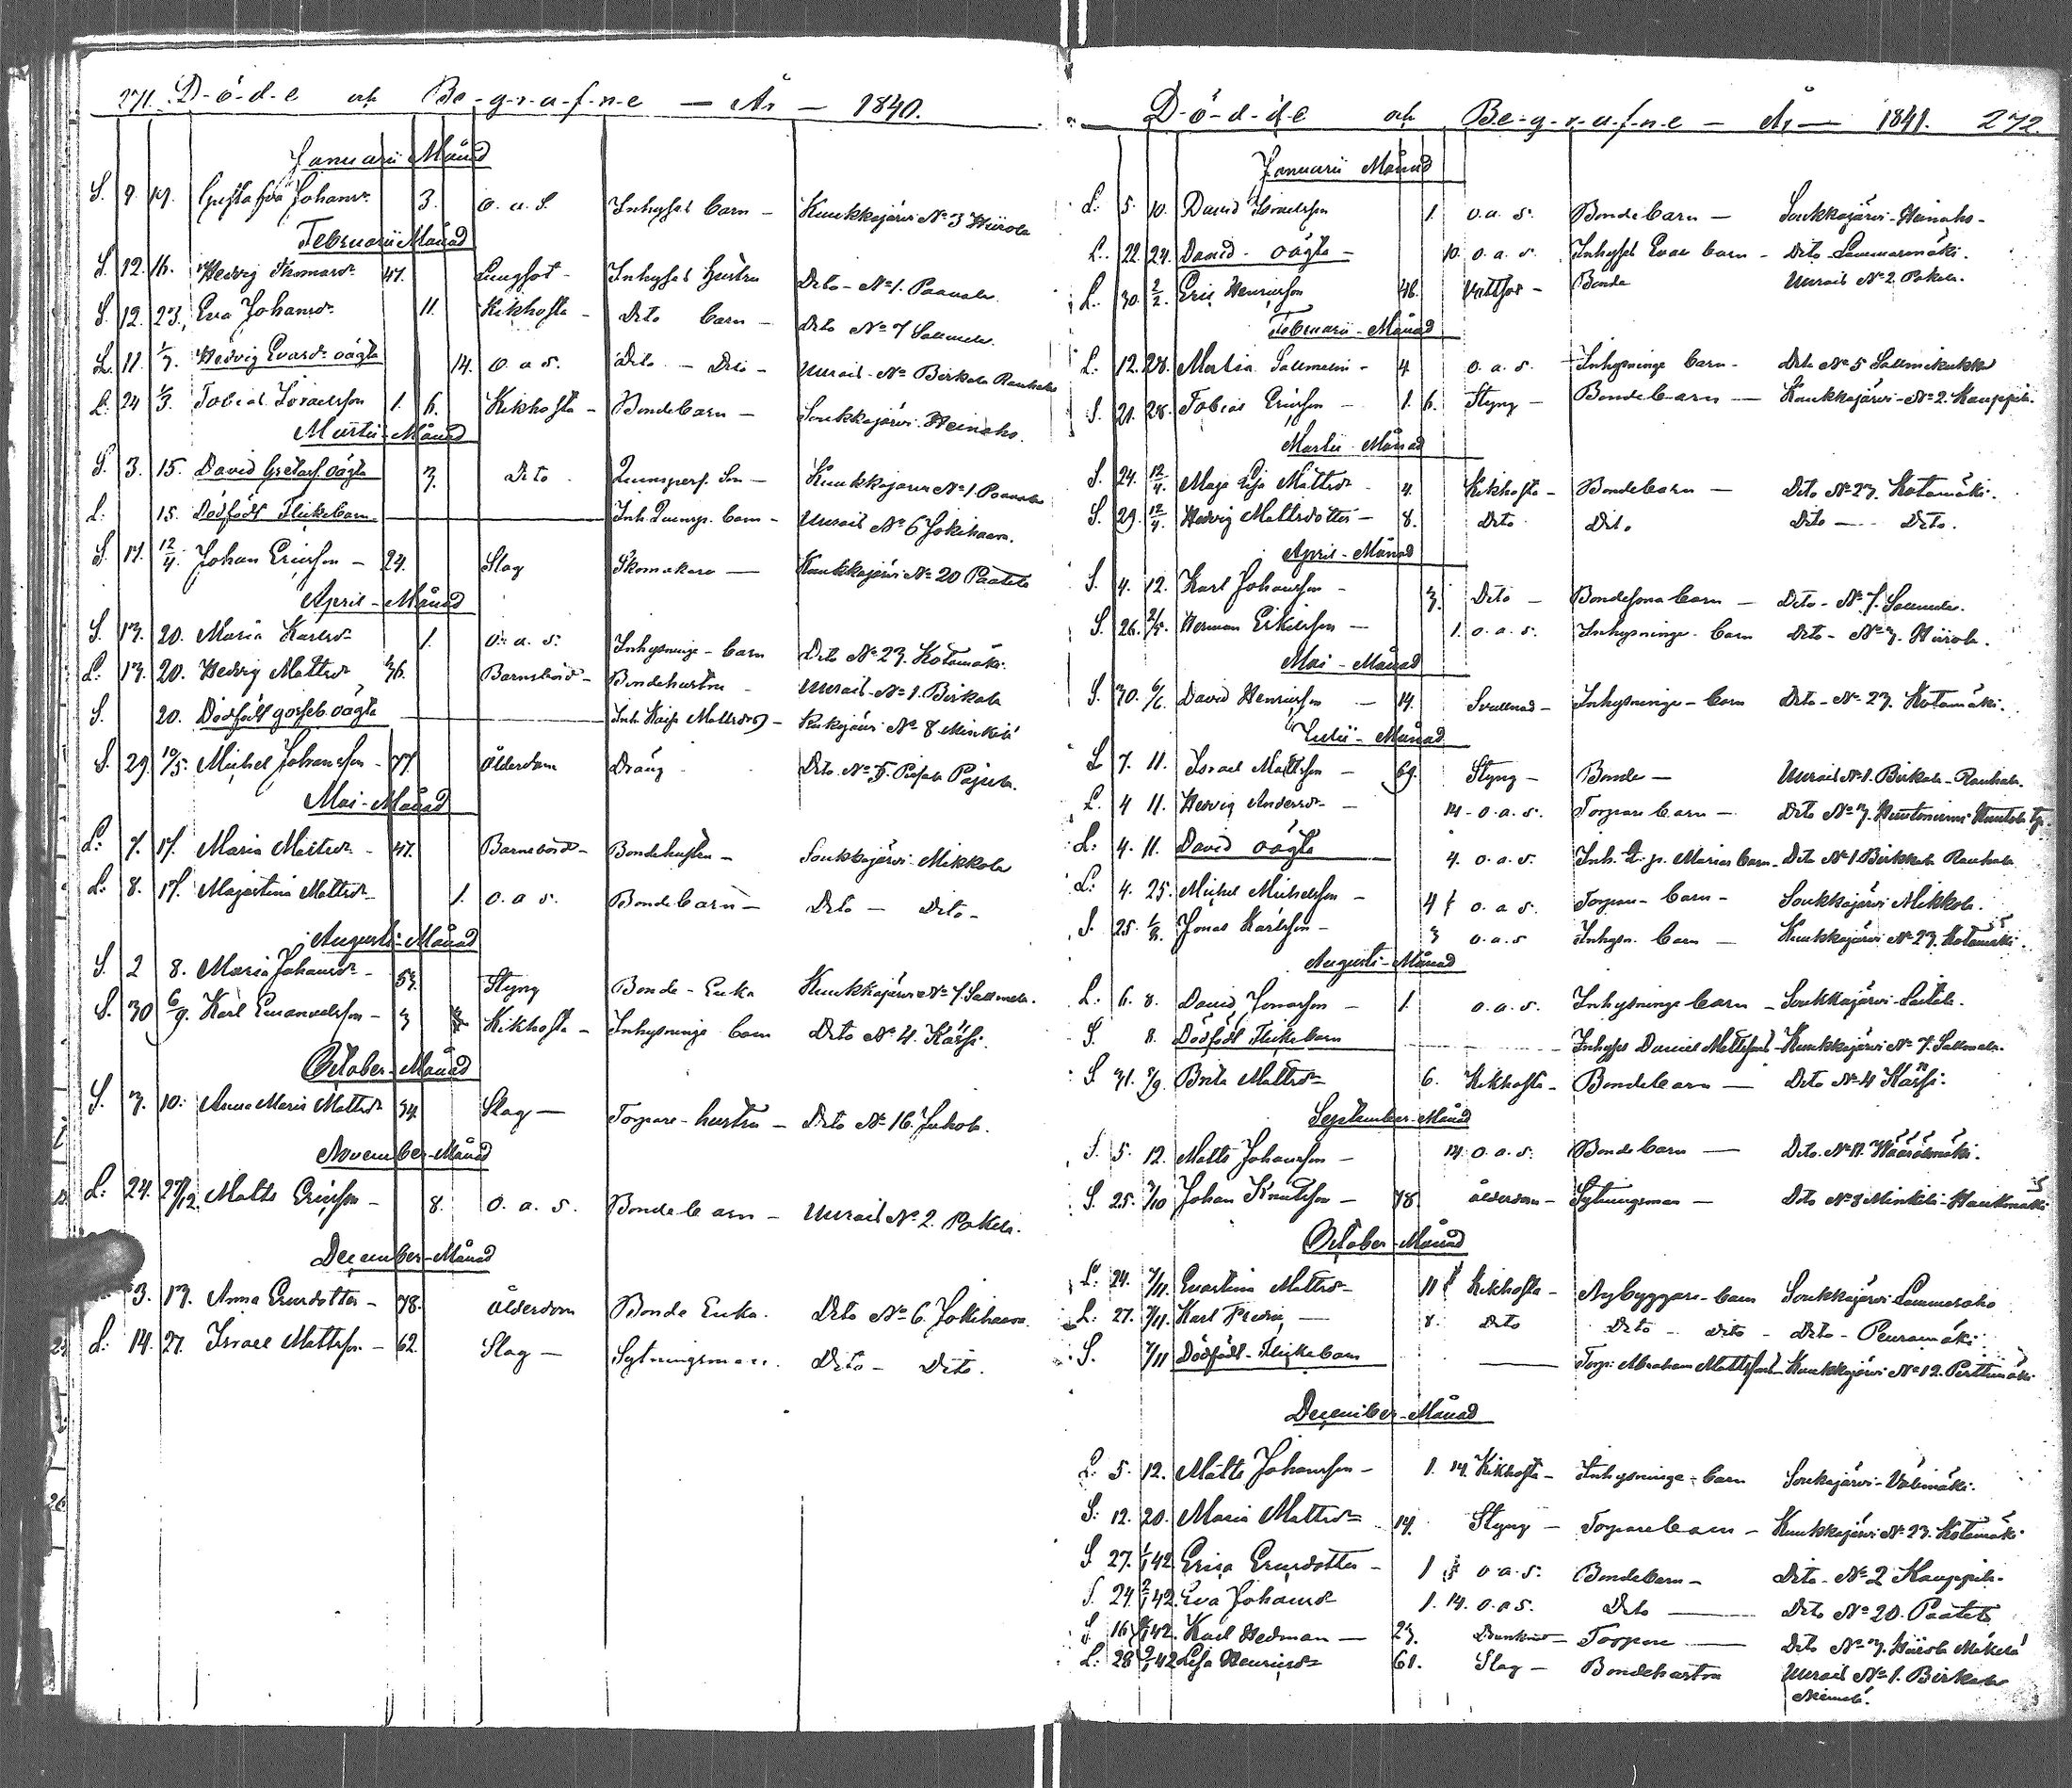 271. D-ö-d-e och Be-g-r-a-f-n-e — År — 1840.
Januarii Månad
S. 9. 19. Gustafva Johansd:r 3. o. a. S. Inhyses barn — Kuukkajärvi N:o 3 Hiirola
Februarii Månad
S. 12. 16. Hedvig Thomasd:r 47. Lungsot — Inhyses hustru Dito — N:o 1. Paavola
S. 12. 23. Eva Johansd:r 11. Kikhosta — Dito barn — Dito N:o 7 Sallmela.
L. 11. 1/3. Hedvig Evasd:r oägta 14. o. a. s. Dito — Dito — Unnais N:o Birkala Rauhala
L. 24 1/3. Tobias Israelsson 1. 6. Kikhosta — Bondebarn — Soukkajärvi Heinaho.
Martii Månad
S. 3. 15. David Gretas s. oägta 3. Dito Quinspers. Son — Kuukkajärvi N:o 1. Paavola
L. 15. Dödfödt Flickebarn — Inh. Quinsp. barn — Unnais N:o 6 Jokihaara.
S. 17. 12/4. Johan Ericsson — 24. Slag Skomakare — Kuukkajärvi N:o 20 Paatela
April — Månad
S. 13. 20. Maria Karlsd:r 1. o. a. s. Inhysninge — barn Dito N:o 23. Kotamäki.
L. 13. 20. Hedvig Mattsd:r 36. Barnsbörd — Bondehustru — Unnais — N:o 1. Birkala
S. 20. Dödfödt gosseb. oägta — Inh. Kaisa Mattsd:rs — Kuukajärvi N:o 8. Minkilä
S. 29. 10/5. Michel Johansson — 77. ålderdom Dräng Dito. N:o 5. Pajula.
Mai — Månad
L. 7. 17. Maria Mattsd:r — 47. Barnsbörd — Bondehustru — Soukkajärvi Mikkola
L. 8. 17. Majastina Mattsd:r — 1. o. a s. Bondebarn — Dito — Dito —
Augusti — Månad
S. 2 8. Maria Johansd:r — 53. Styng Bonde — Enka Kuukkajärvi N:o 7. Sallmela.
S. 30 6/9. Karl Emanuelsson — 3 Kikhosta — Inhysninge barn Dito N:o 4. Kärsi.
October — Månad
S. 3. 10. Anna Maria Mattsd:r 34. Slag — Torpare — hustru — Dito N:o 16. Jukola.
November — Månad
L. 24. 27/12. Matts Ericsson — 8. o. a. s. Bondebarn — Unnais N:o 2. Pakela.
December — Månad
3. 13. Anna Ericsdotter — 78. ålderdom Bonde Enka. Dito N:o 6. Jokihaara
L. 14. 27. Israel Mattsson — 62. Slag — Sytningsman. Dito — Dito.
D-ö-d-d-e och Be-g-r-a-f-n-e — År — 1841. 272.
Januarii Månad
L. 5. 10. David Israelsson 1. o. a. s. Bondebarn — Soukkajärvi — Heinaho —
L. 22. 24. David — oägta — 10. o. a. s. Inhyses Evas barn — Dito Lammasmäki.
L. 30. 2/2. Eric Henricsson 46. Vattsot — Bonde Unnais N:o 2. Pakela.
Februarii — Månad
L. 12. 28. Matilda Sallmelin — 4 o. a. s. Inhysninge barn — Dito N:o 5
S. 21. 28. Tobias Ericsson — 1. 6. Styng — Bondebarn — Kuukkajärvi — N:o 2. Kauppila.
Martii — Månad
S. 24. 12/4. Maja Lisa Mattsd:r — 4. Kikhosta — Bondebarn — Dito N:o 23. Kotamäki.
S. 29. 12/4. Hedvig Mattsdotter — 8. Dito Dito Dito — Dito.
April — Månad
S. 4. 12. Karl Johansson — 3. Dito — Bondesona barn — Dito — N:o 7. Sallmela.
S. 26. 2/5. Herman Erikson — 1. o. a. s. Inhysninge — barn Dito — N:o 3. Hiirola.
Mai — Månad
S. 30. 6/6. David Henricsson — 14. Svullnad — Inhysninge — barn Dito — N:o 23. Kotamäki.
Julii — Månad
L. 7. 11. Israel Mattsson — 69. Styng — Bonde — Unnais N:o 1. Birkala — Rauhala.
L. 4 11. Hedvig Andersd:r — 14 — o. a. s. Torpare barn — Dito N:o 3.
L. 4. 11. David oägta 4. o. a. s. Inh. Q. p. Marias barn — Dito N:o 1. Birkkala Rauhala
L. 4. 25. Michel Michelsson — 4 o. a s. Torpare — barn — Soukkajärvi Mikkola.
S. 25. 1/8. Jonas Karlsson — 3 o. a. s Inhysn. barn — Kuukkajärvi N:o 23. Kotamäki.
Augusti — Månad
L. 6. 8. David Jonasson — 1. o. a. s. Inhysninge barn — Soukkajärvi —
S. 8. Dödfödt Flickebarn — Inhyses Daniel Mattssons — Kuukkajärvi N:o 7. Sallmela.
S 31. 5/9. Brita Mattsd:r 6. Kikhosta — Bondebarn — Dito N:o 4 Kärsi.
September — Månad
S. 5. 12. Matts Johansson — 14 o. a. s. Bondebarn — Dito. N:o 17. Määräsmäki.
S. 25. 3/10 Johan Knutsson — 78. ålderdom — Sytningsman — Dito N:o 8 Minkilä —
October — Månad
L. 24. 7/11. Evastina Mattsd:r — 11 Kikhosta — Nybyggare — barn Soukkajärvi Lammesaho
L. 27. 7/11. Karl Fredric — 8. Dito Dito — dito — Dito — Peuramäki
S. 7/11 Dödfödt — Flickebarn — Torp. Abraham Mattssons — Kuukkajärvi N:o 12. Perttumäki
December — Månad
L. 5. 12. Matts Johansson — 1. 14. Kikhosta — Inhysninge — barn Soukajärvi — Välimäki.
S. 12. 20. Maria Mattsd:r 14. Styng — Torparebarn — Kuukkajärvi N:o 23. Kotamäki
S 27. 1/1 42. Erica Ericsdotter — 1 o. a. s. Bondebarn — Dito — N:o 2 Kauppila.
S. 24. 2/1 42. Eva Johansd:r 1. 14. o. a s. Dito — Dito N:o 20. Paatela
S 16 42. Karl Hedman — 23. Torpare — Dito N:o 3. Hiirola Mäkelä
L. 28 9/1 42 Lisa Henricsd:r 61. Slag — Bondehustru Unnais N:o 1. Birkala
Niemelä.